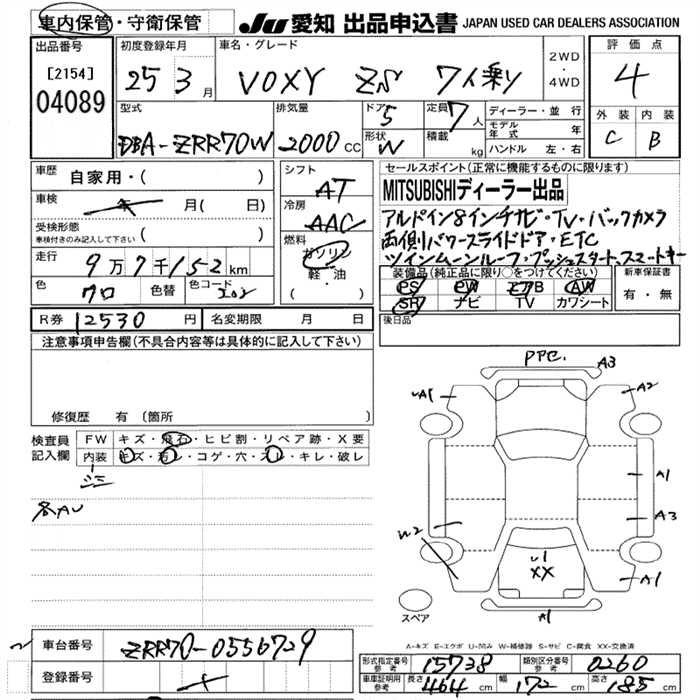 車内保管・守衛保管 JU愛知 出品申込書 JAPAN USED CAR DEALERS ASSOCIATION
出品番号 [2154] 04089
初度登録年月 25 3月
車名・グレード VOXY ZS 7人乗り
2WD・4WD
評価点 4
外装 C 内装 B
型式 DBA-ZRR70W
排気量 2000 CC
ドア 5 形状 W
定員 7人 積載 kg
ディーラー・並行
モデル年式 年
ハンドル 左・右
車歴 自家用・( )
車検 年 月( 日)
受検形態
車検付きのみ記入して下さい ( )
走行 9万7千152km
色 クロ 色替 色コード 202
シフト AT
冷房 AAC
燃料 ガソリン 軽・油 ( )
セールスポイント(正常に機能するものに限ります)
MITSUBISHIディーラー出品
アルパイン8インチナビ・TV・バックカメラ
両側パワースライドドア・ETC
ツインムーンルーフ・プッシュスタート、スマートキー
装備品(純正品に限り○をつけてください)
PS PW エアB AW
SR ナビ TV カワシート
新車保証書 有・無
後日品
R券 12530円 名変期限 月 日
注意事項申告欄(不具合内容等は具体的に記入して下さい)
修復歴 有(箇所 )
検査員記入欄
FW キズ・飛石・ヒビ割・リペア跡・X要
内装 キズ・汚レ・コゲ・穴・スレ・キレ・破レ
シミ
各AU
PPC. A3
A1 A2
A1
A3
W2
U1
XX
A1
A1
スペア
A-キズ E-エクボ U-凹み W-補修跡 S-サビ C-腐食 XX-交換済
車台番号 ZRR70-0556729
登録番号
形式指定番号 参考 15738 類別区分番号 参考 0260
車庫証明用 参考 長さ 464 cm 幅 172 cm 高さ 185 cm